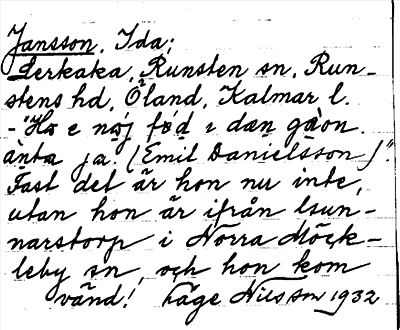 Jansson, Ida;
Lerkaka, Runsten sn, Run-
stens hd, Öland, Kalmar l.
- "Ho e nöj fød i dæn gåon
änta ja. (Emil Danielsson)".
Fast det är hon nu inte,
utan hon är ifrån Gun-
narstorp i Norra Möck-
leby sn, och hon kom
vänd! Låge Nilsson 1932